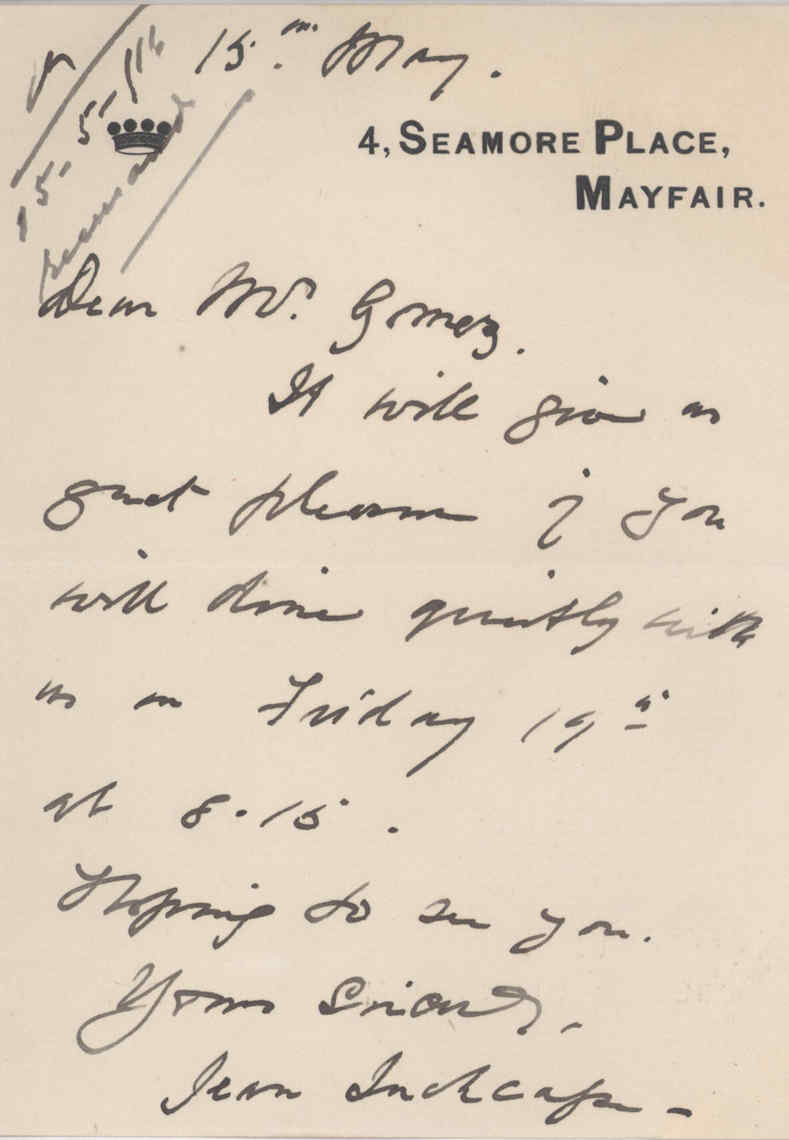 15th May.
4, SEAMORE PLACE,
MAYFAIR.
Dear Mr. Gomez.
It will give us
great pleasure if you
will dine quietly with
us on Friday 19th
at 8.15.
Hoping to see you.
Yours Sincerely.
Jean Inchcape